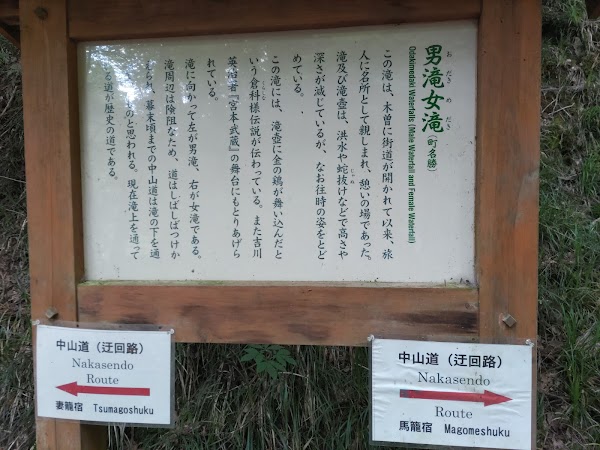 おだき めだき
男滝女滝（町名勝）
Odakimedaki Waterfalls (Male Waterfall and Female Waterfall)
この滝は、木曽に街道が開かれて以来、旅
人に名所として親しまれ、憩いの場であった。
滝及び滝壺は、洪水や蛇抜けなどで高さや
深さが減じているが、なお往時の姿をとど
めている。
この滝には、滝壺に金の鶏が舞い込んだと
いう倉科様伝説が伝わっている。また吉川
英治著『宮本武蔵』の舞台にもとりあげら
れている。
滝に向かって左が男滝、右が女滝である。
滝周辺は険阻なため、道はしばしばつけか
えられ、幕末頃までの中山道は滝の下を通
ものと思われる。現在滝上を通って
る道が歴史の道である。
中山道（迂回路）
Nakasendo
Route
妻籠宿 Tsumagoshuku
中山道（迂回路）
Nakasendo
Route
馬籠宿 Magomeshuku